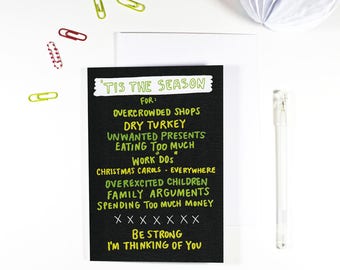 'TIS THE SEASON
FOR:
OVERCROWDED SHOPS
DRY TURKEY
UNWANTED PRESENTS
EATING TOO MUCH
WORK "DOs"
CHRISTMAS CAROLS - EVERYWHERE
OVEREXCITED CHILDREN
FAMILY ARGUMENTS
SPENDING TOO MUCH MONEY
X X X X X X X
BE STRONG
I'M THINKING OF YOU